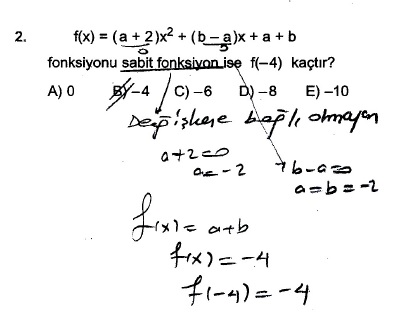 2. f(x) = (a + 2)x² + (b – a)x + a + b
0 0
fonksiyonu sabit fonksiyon ise f(–4) kaçtır?
A) 0 B) –4 C) –6 D) –8 E) –10
Değişkene bağlı olmayan
a+2=0
a=-2
b-a=0
a=b=-2
f(x)= a+b
f(x)=-4
f(-4)=-4